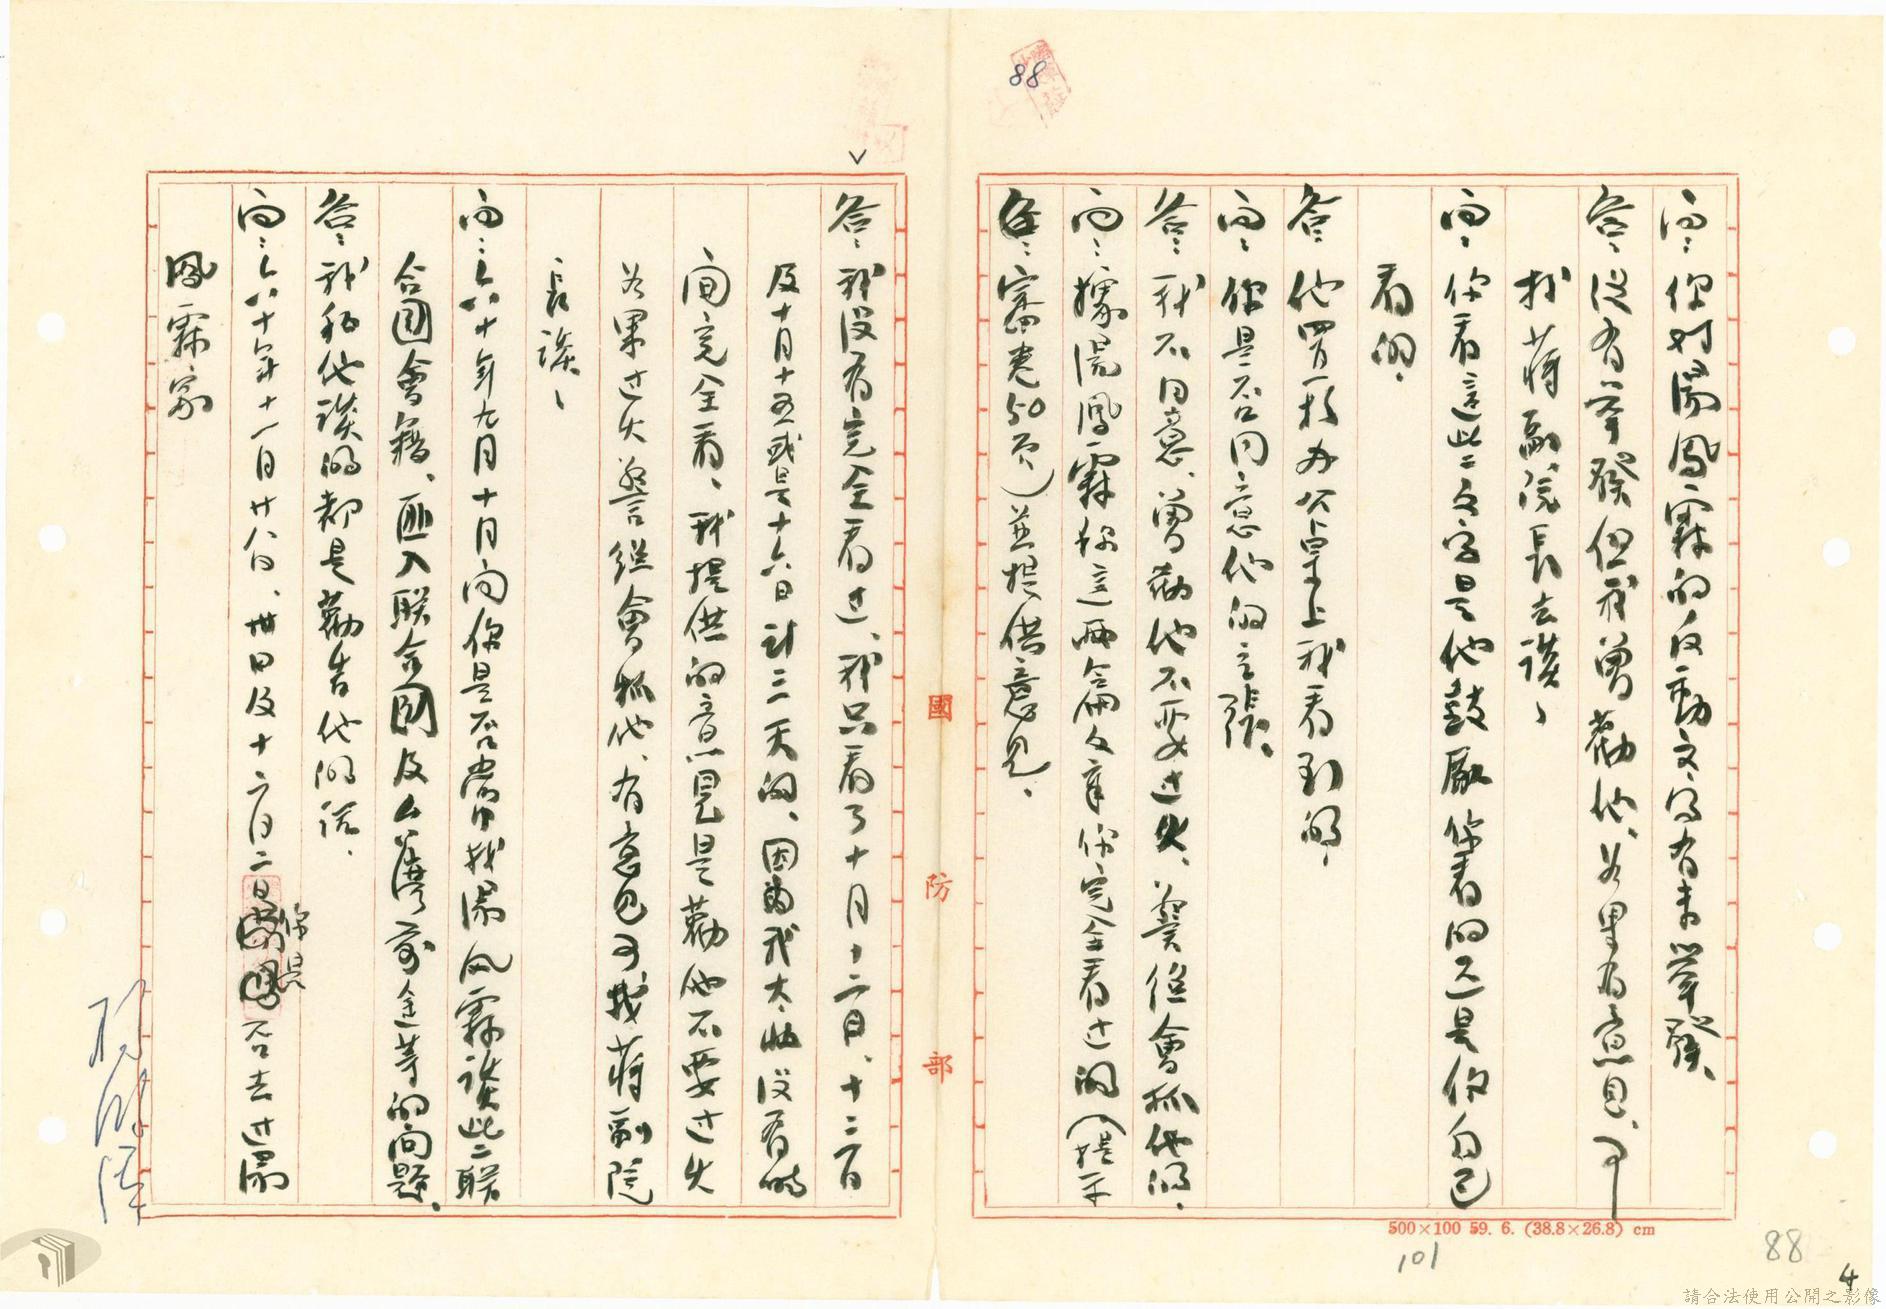 88
問：你對湯鳳霖的反動文字有未舉發、
答：沒有舉發但我曾勸他、若果有意見、可
找蔣副院長去談、
問：你看這些文字是他鼓勵你看的還是你自己
看的、
答：他買形
我看到的、
問：你是否同意他的主張、
答：我不同意、曾勸他不要過火、警總會抓他的、
問：據湯鳳霖稱這兩篇文章你完全看过的（提示
卷50頁）並提供意見、
答：我沒有完全看过、我只看了十月十二日、十三日
及十月十五或是十六日計三天的、因為我太忙沒有時
間完全看、我提供的意見是勸他不要过火
若果过火警總會抓他、有意見可找蔣副院
長談、
問：六十年九月十月間你是否常找湯鳳霖談此二聯
合國會籍、匪入聯合國及台灣前途等的問題、
答：我和他談的都是勸告他的話、
問：六十年十一月廿八日、卅日及十二月二日你是否去过湯
鳳霖家
國防部
500×100 59. 6. (38.8×26.8) cm
101
88
4
請合法使用公開之影像